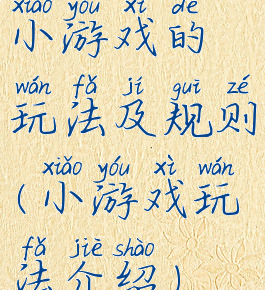 xiǎo yóu xì de
小游戏的
wán fǎ jí guī zé
玩法及规则
xiǎo yóu xì wán
(小游戏玩
fǎ jiè shào
法介绍)